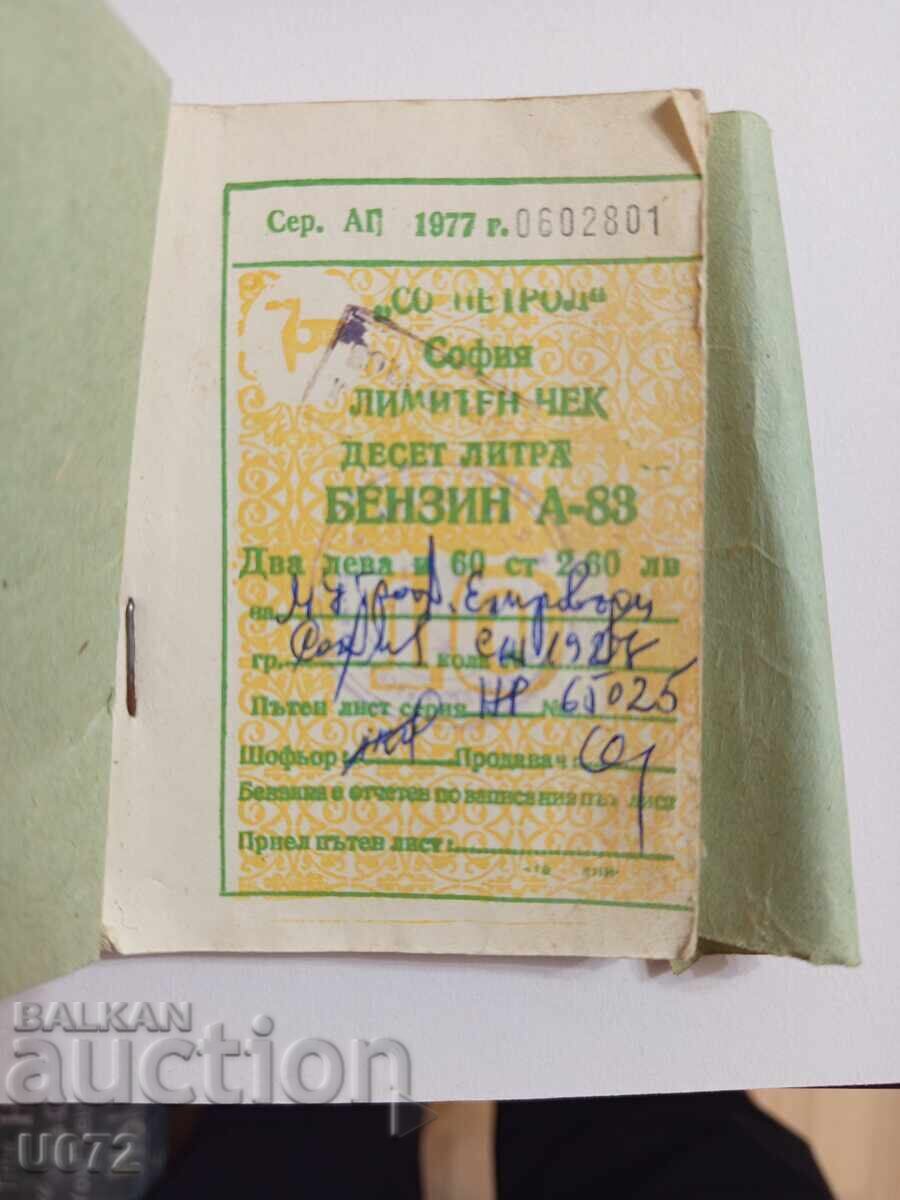 Сер. АП 1977 г. 0602801
„СО ПЕТРОЛ“
София
ЛИМИТЕН ЧЕК
ДЕСЕТ ЛИТРА
БЕНЗИН А-83
Два лева и 60 ст 2.60 лв
10
на
гр. кола СШ 1928
Пътен лист серия НР № 65025
Шофьор: Продавач:
Бензина е отчетен по записания път лист
Приел пътен лист:
BALKAN
auction
U072